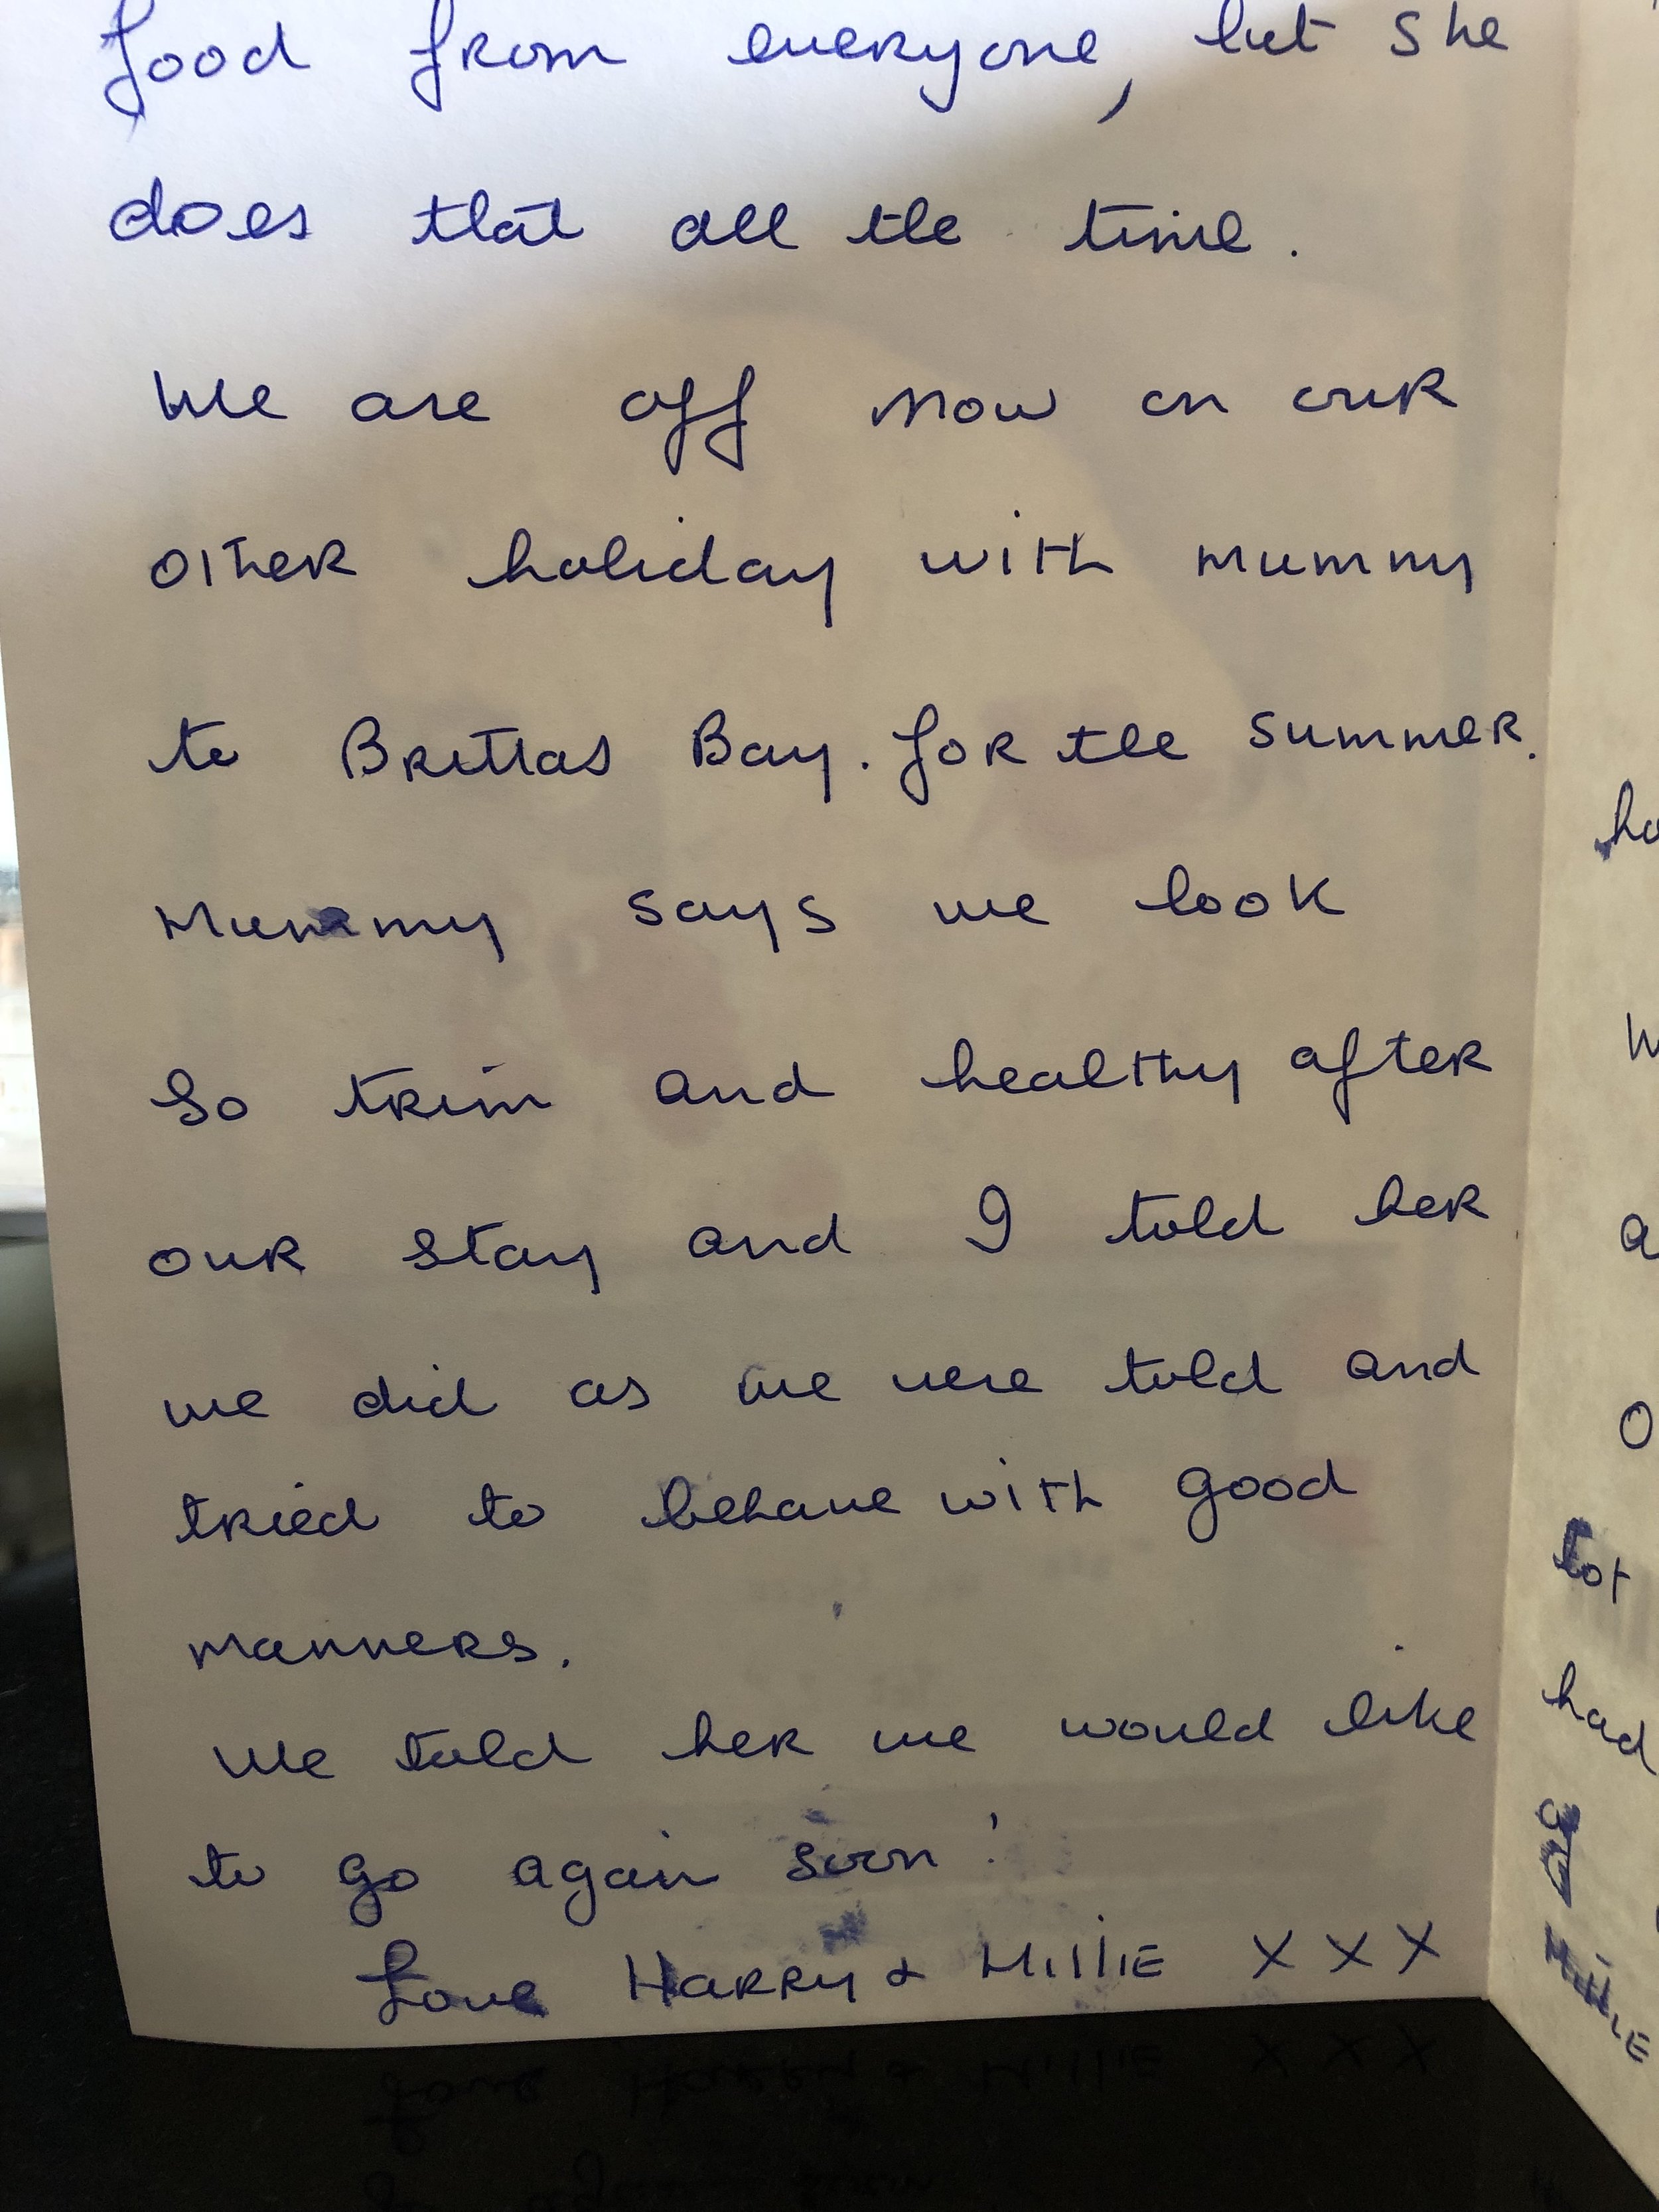 food from everyone, but she
does that all the time.
We are off now on our
other holiday with mummy
to Brittas Bay. for the summer.
Mummy says we look
So trim and healthy after
our stay and I told her
we did as we were told and
tried to behave with good
manners.
We told her we would like
to go again soon!
Love Harry & Millie X X X
ho
W
a
O
lot
had
Millie